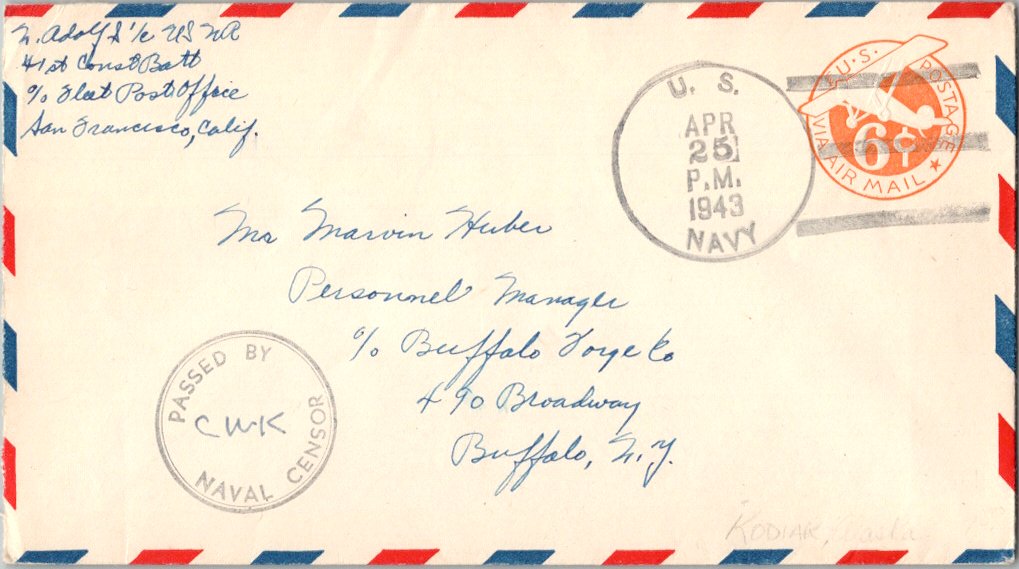 N. Adolf S 1/c US NR
41st Const Batt
c/o Fleet Post Office
San Francisco, Calif.
U. S.
APR
25
P.M.
1943
NAVY
U.S. POSTAGE
6¢
VIA AIR MAIL
Mr Marvin Huber
Personnel Manager
c/o Buffalo Forge Co
490 Broadway
Buffalo, N.Y.
PASSED BY
CWK
NAVAL CENSOR
KODIAK, Alaska